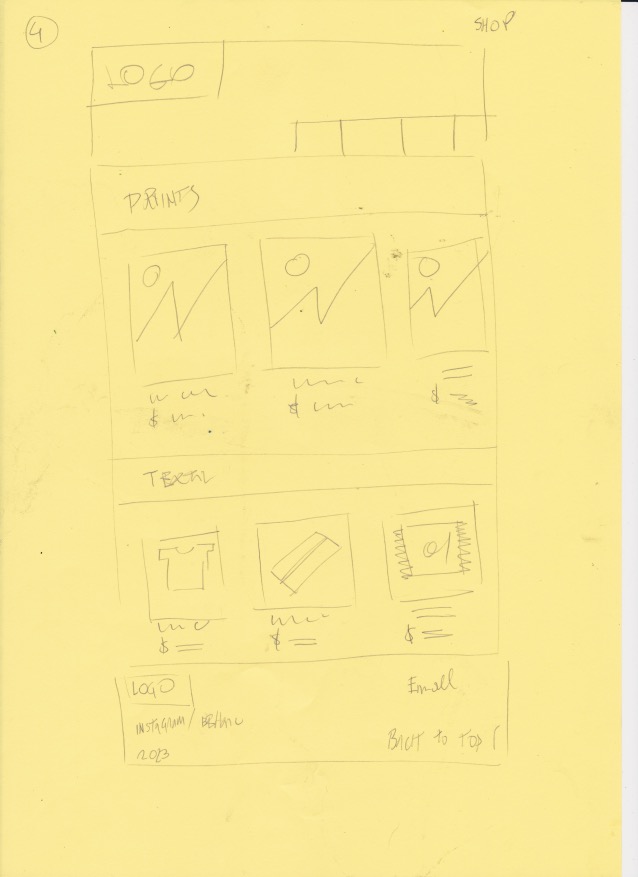 4
SHOP
LOGO
PRINTS
$
$
$
TEXTIL
$
$
$
LOGO
Email
INSTAGRAM / BEHANC
2023
BACK to TOP ↑